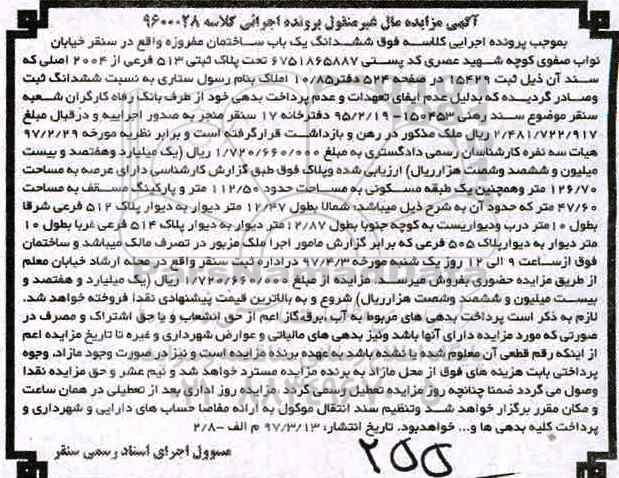 آگهی مزایده مال غیر منقول پرونده اجرائی کلاسه ۹۶۰۰۰۲۸
بموجب پرونده اجرایی کلاسه فوق ششدانگ یک باب ساختمان مفروزه واقع در سنقر خیابان
نواب صفوی کوچه شهید عصری کد پستی ۶۷۵۱۸۶۵۸۸۷ تحت پلاک ثبتی ۵۱۳ فرعی از ۲۰۰۴ اصلی که
سند آن ذیل ثبت ۱۵۴۲۹ در صفحه ۵۲۴ دفتر ۱۰/۸۵ املاک بنام رسول ستاری به نسبت ششدانگ ثبت
وصادر گردیده که بدلیل عدم ایفای تعهدات و عدم پرداخت بدهی خود از طرف بانک رفاه کارگران شعبه
سنقر موضوع سند رهنی ۱۵۰۴۵۳-۹۵/۲/۱۹ دفترخانه ۱۷ سنقر منجر به صدور اجراییه و درقبال مبلغ
۲/۴۸۱/۷۲۲/۹۱۷ ریال ملک مذکور در رهن و بازداشت قرارگرفته است و برابر نظریه مورخه ۹۷/۲/۲۹
هیات سه نفره کارشناسان رسمی دادگستری به مبلغ ۱/۷۲۰/۶۶۰/۰۰۰ ریال (یک میلیارد وهفتصد و بیست
میلیون و ششصد وشصت هزارریال) ارزیابی شده وپلاک فوق طبق گزارش کارشناسی دارای عرصه به مساحت
۱۲۶/۷۰ متر وهمچنین یک طبقه مسکونی به مساحت حدود ۱۱۲/۵۰ متر و پارکینگ مسقف به مساحت
۴۷/۶۰ متر که حدود آن به شرح ذیل میباشد: شمالا بطول ۱۲/۴۷ متر دیوار به دیوار پلاک ۵۱۲ فرعی شرقا
بطول ۱۰ متر درب ودیواریست به کوچه جنوبا بطول ۱۲/۸۷ متر دیوار به دیوار پلاک ۵۱۴ فرعی غربا بطول ۱۰
متر دیوار به دیوارپلاک ۵۰۵ فرعی که برابر گزارش مامور اجرا ملک مزبور در تصرف مالک میباشد و ساختمان
فوق ازساعت ۹ الی ۱۲ روز یک شنبه مورخه ۹۷/۴/۳ در اداره ثبت سنقر واقع در محله ارشاد خیابان معلم
از طریق مزایده حضوری بفروش میرسد. مزایده از مبلغ ۱/۷۲۰/۶۶۰/۰۰۰ ریال (یک میلیارد و هفتصد و
بیست میلیون و ششصد وشصت هزارریال) شروع و به بالاترین قیمت پیشنهادی نقدا فروخته خواهد شد.
لازم به ذکر است پرداخت بدهی های مربوط به آب،برق،گاز اعم از حق انشعاب و یا حق اشتراک و مصرف در
صورتی که مورد مزایده دارای آنها باشد ونیز بدهی های مالیاتی و عوارض شهرداری و غیره تا تاریخ مزایده اعم
از اینکه رقم قطعی آن معلوم شده یا نشده باشد به عهده برنده مزایده است و نیز در صورت وجود مازاد، وجوه
پرداختی بابت هزینه های فوق از محل مازاد به برنده مزایده مسترد خواهد شد و نیم عشر و حق مزایده نقدا
وصول می گردد ضمنا چنانچه روز مزایده تعطیل رسمی گردد ،مزایده روز اداری بعد از تعطیلی در همان ساعت
و مکان مقرر برگزار خواهد شد وتنظیم سند انتقال موکول به ارائه مفاصا حساب های دارایی و شهرداری و
پرداخت کلیه بدهی ها و... خواهدبود. تاریخ انتشار: ۹۷/۳/۱۳ م الف -۲/۸
مسوول اجرای اسناد رسمی سنقر
۲۵۵
ParsNamadData